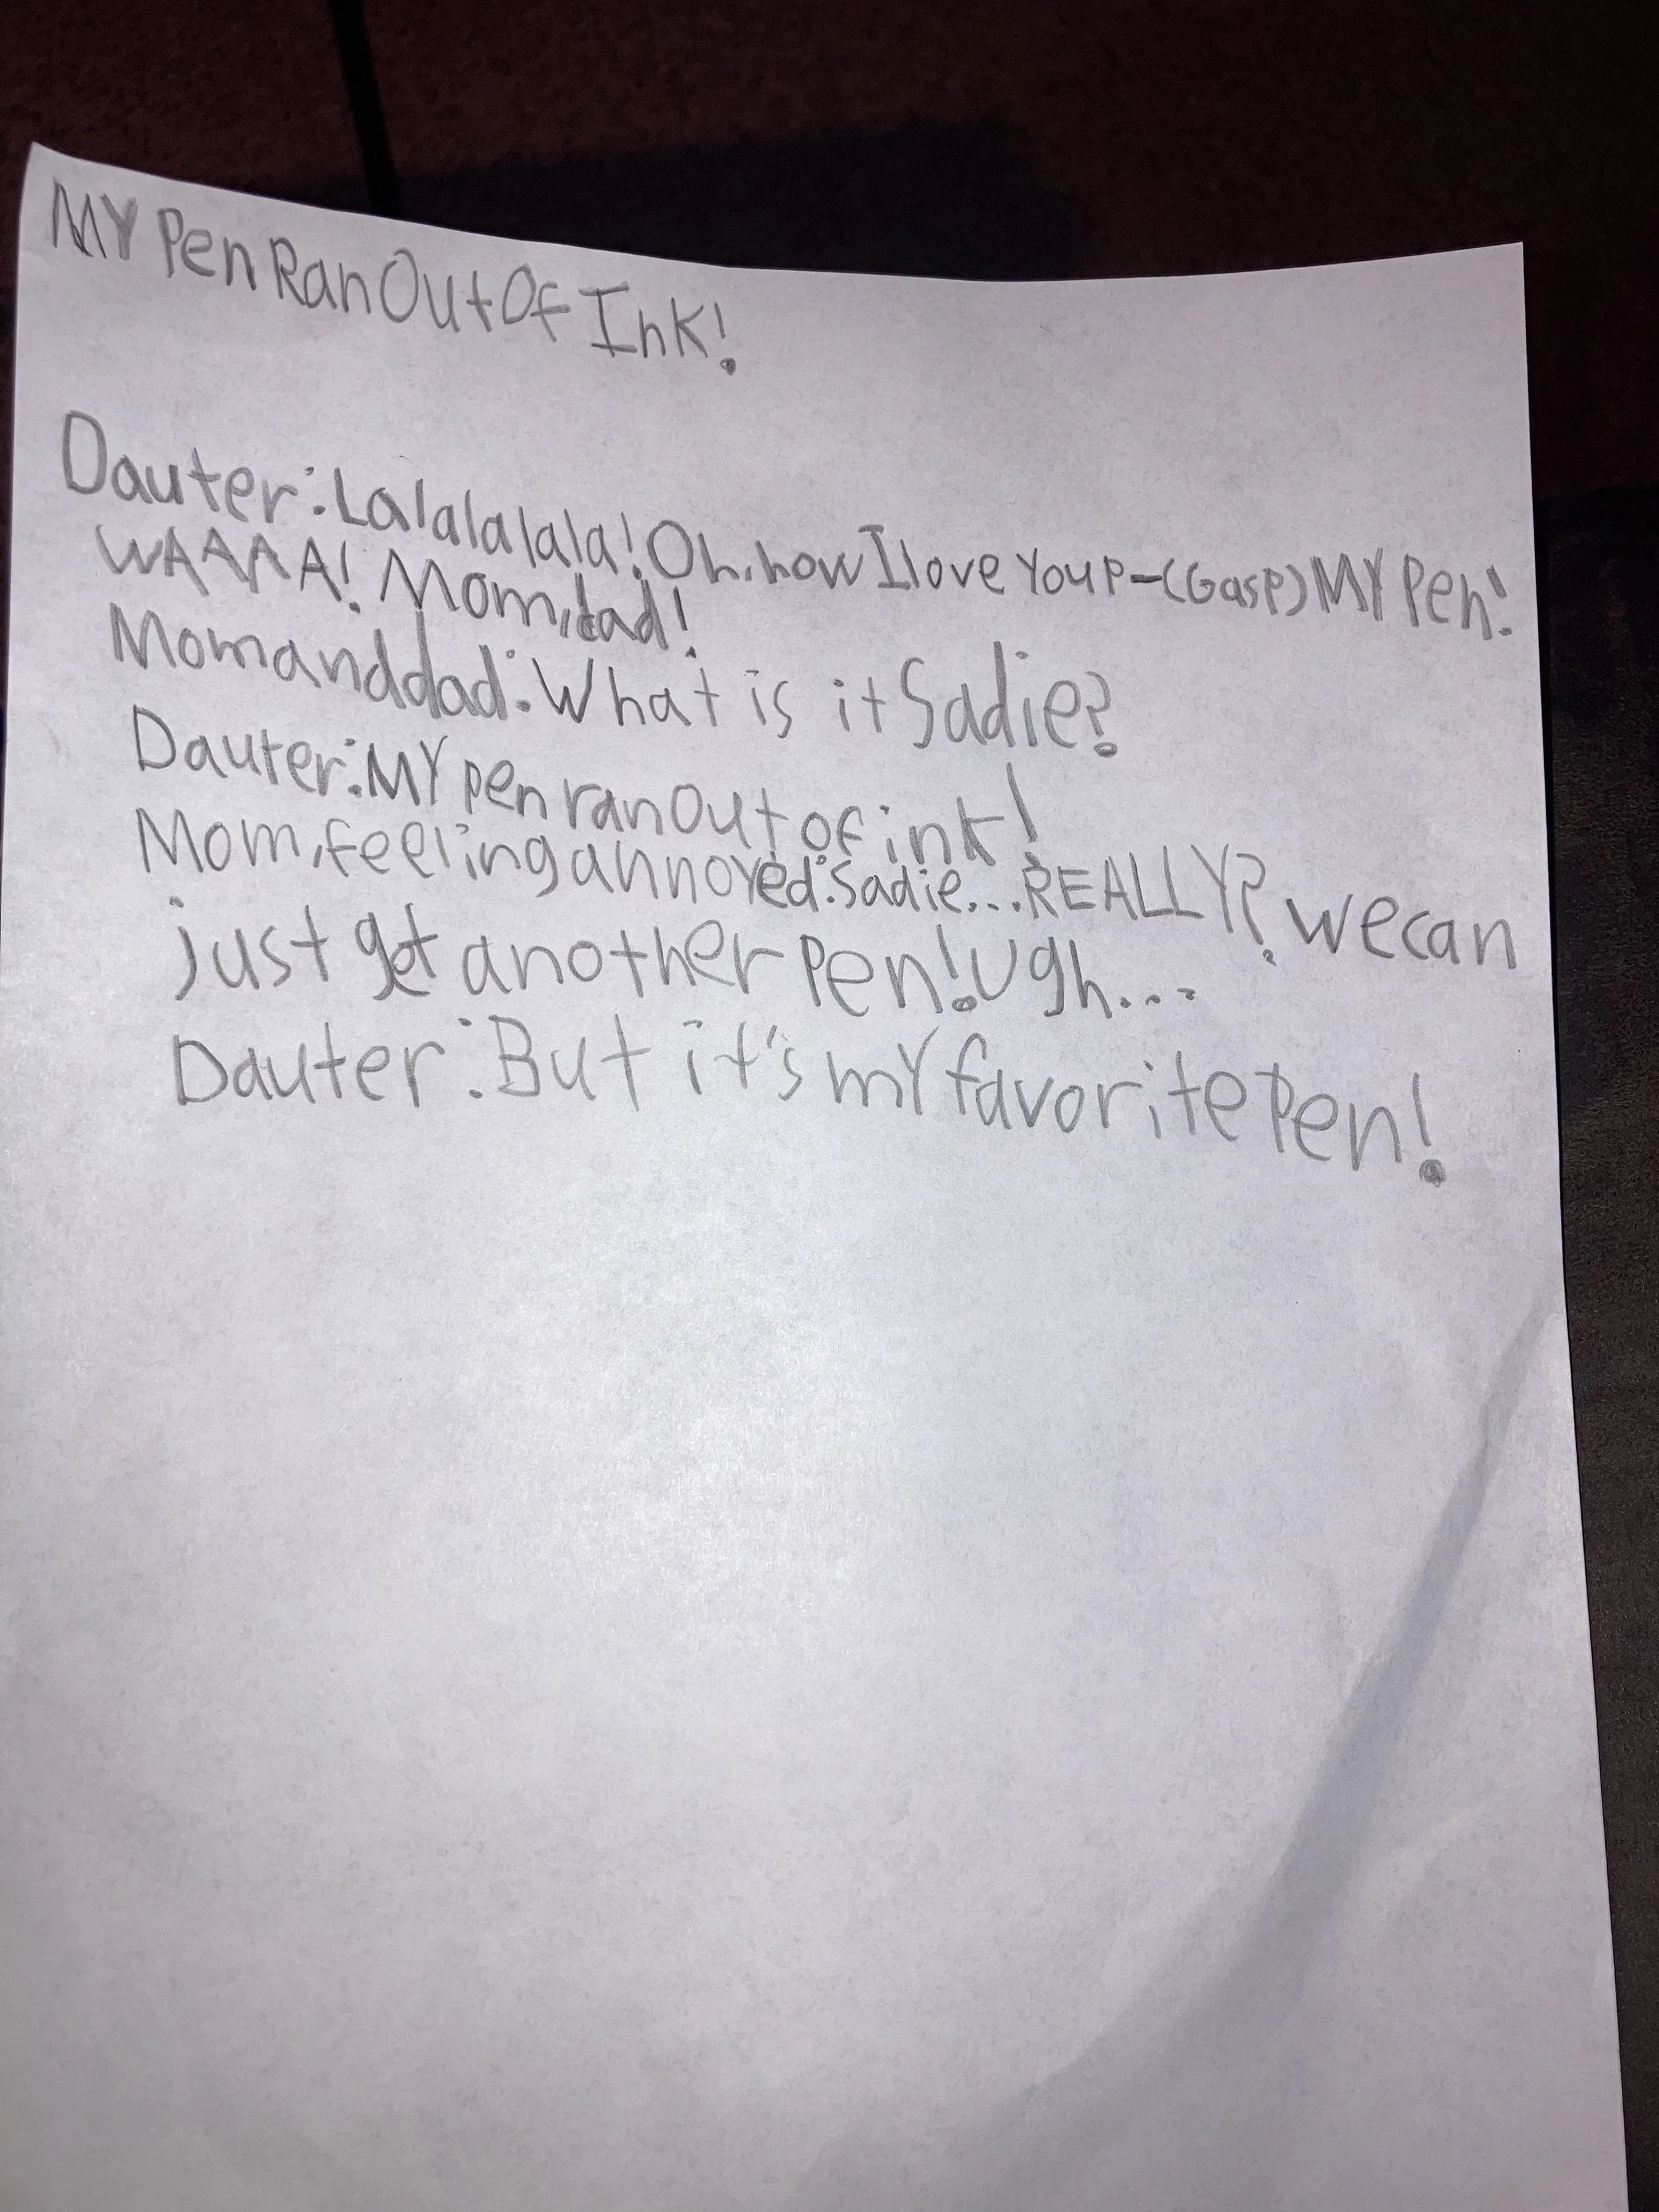 MY Pen Ran Out Of Ink!
Dauter: Lalalalala! Oh, how I love You P-(Gasp) MY Pen!
WAAAA! Mom, dad!
Mom and dad: What is it Sadie?
Dauter: MY pen ran Out of ink!
Mom, feeling annoyed: Sadie... REALLY? we can
just get another Pen! Ugh...
Dauter: But it's mY favorite Pen!